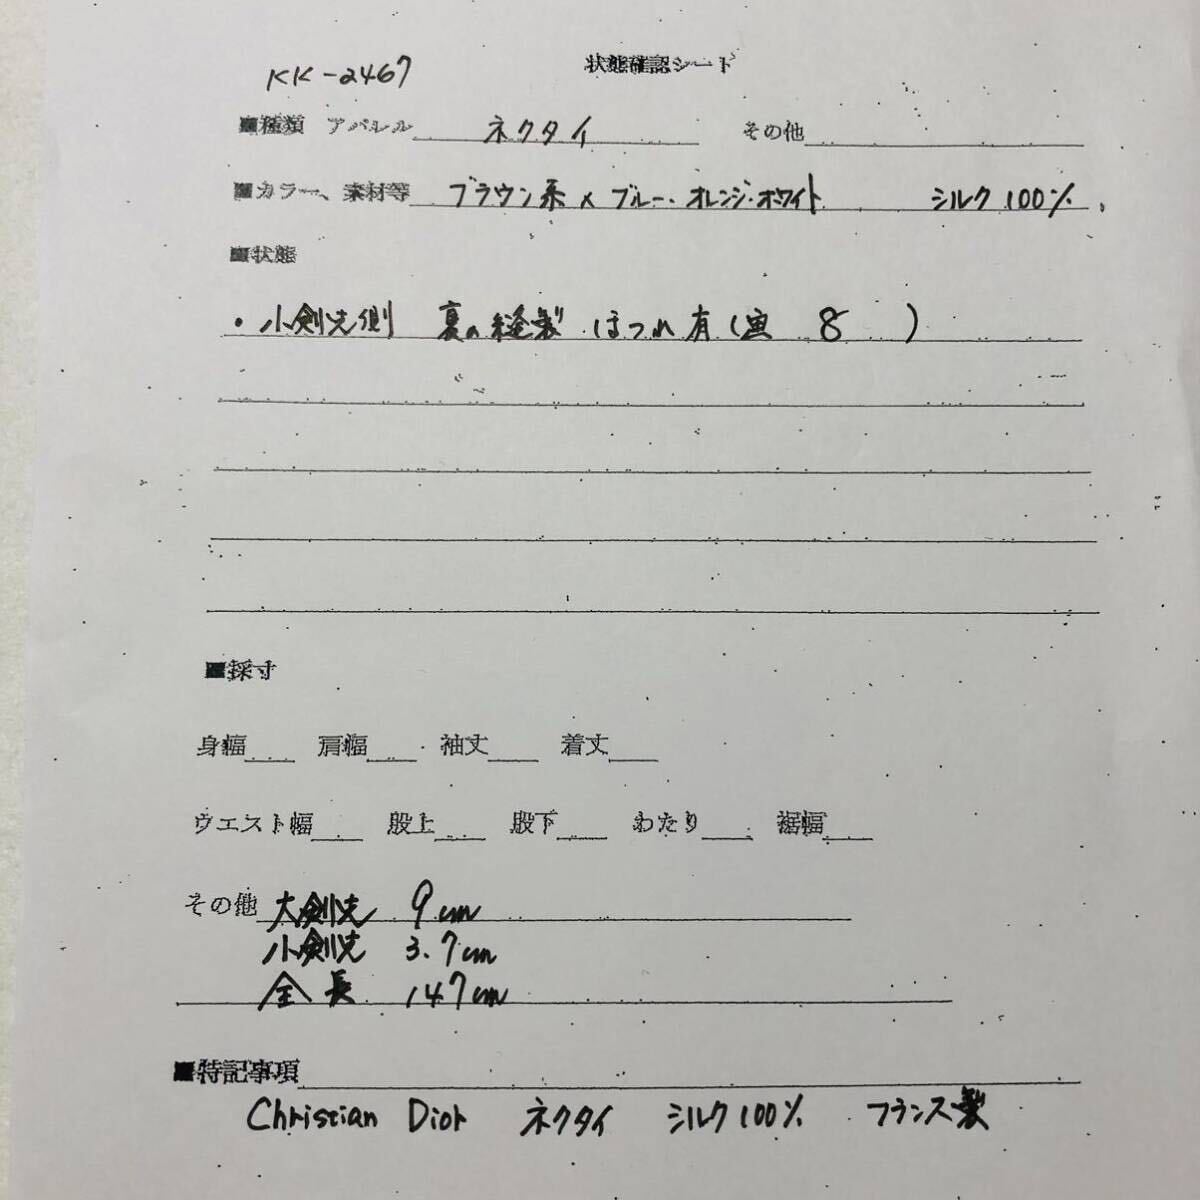 状態確認シート
KK-2467
■種類 アパレル ネクタイ その他
■カラー、素材等 ブラウン系×ブルー・オレンジ・ホワイト シルク100%
■状態
・小剣先側 裏の縫製 ほつれ有(画 8 )
■採寸
身幅 肩幅 袖丈 着丈
ウエスト幅 股上 股下 わたり 裾幅
その他 大剣先 9cm
小剣先 3.7cm
全長 147cm
■特記事項
Christian Dior ネクタイ シルク100% フランス製